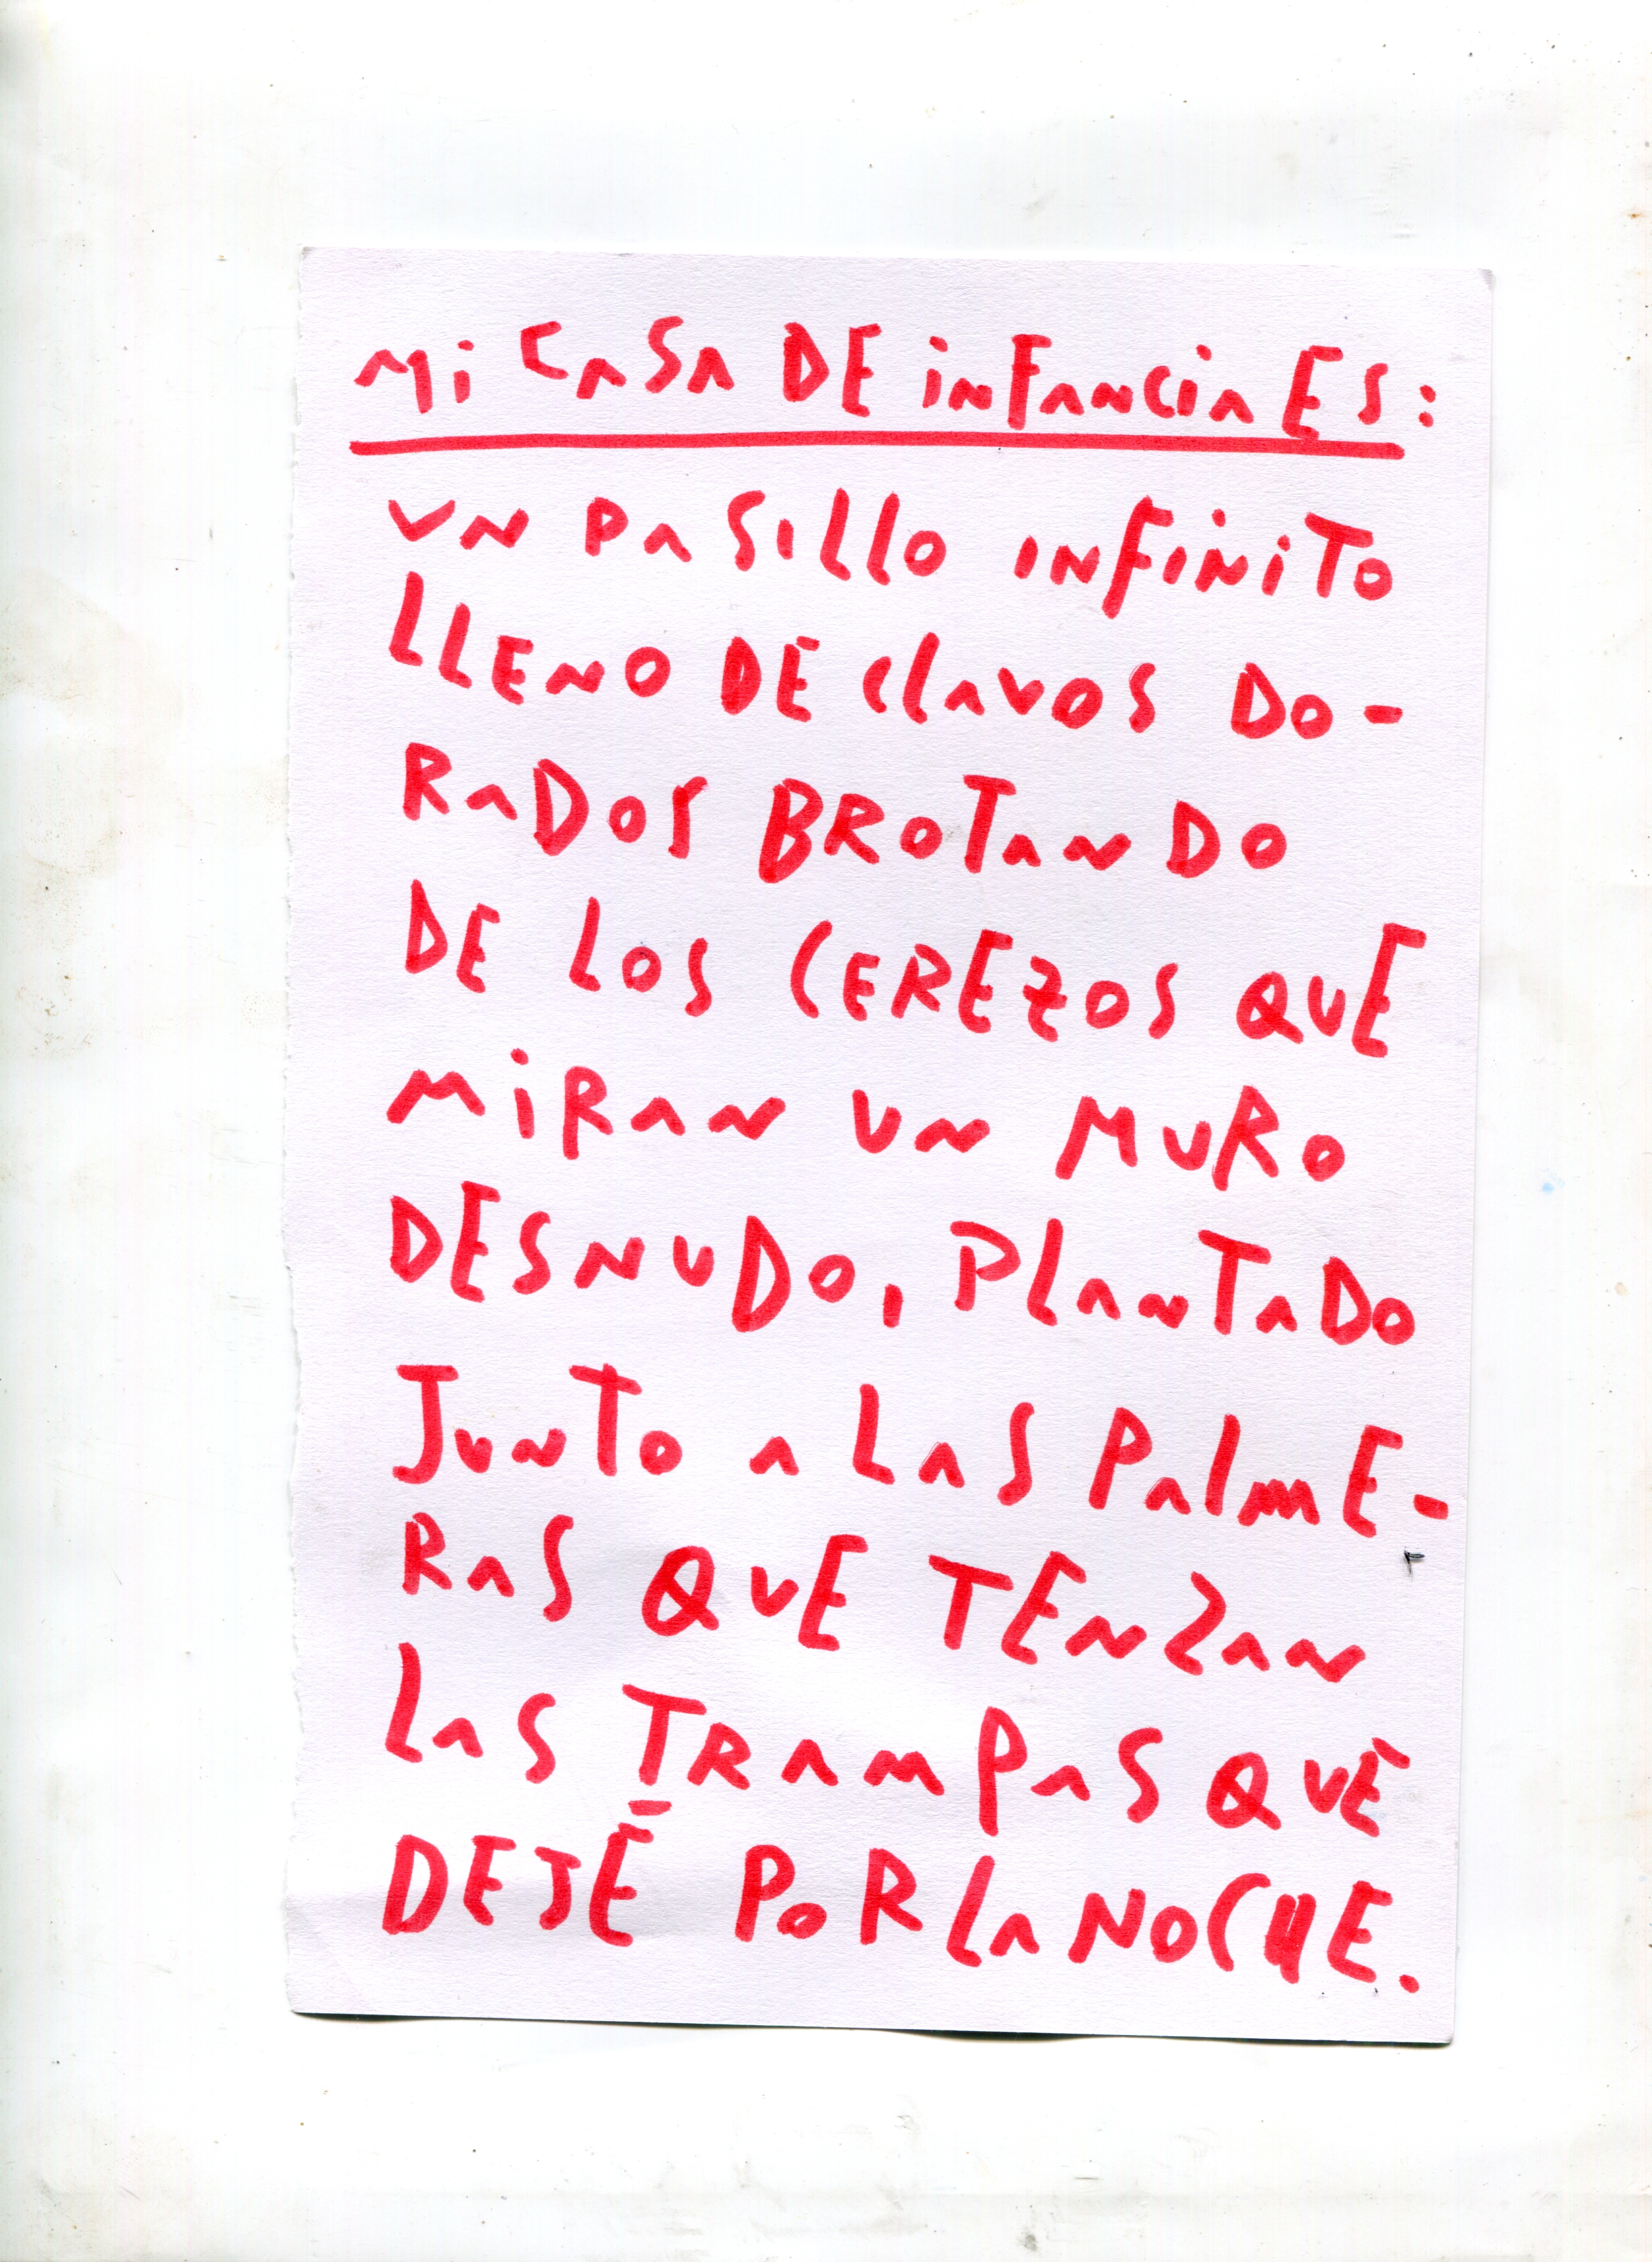 Mi CASA DE inFANCiA ES:
UN PASILLO INFINiTO
LLENO DE CLAVOS DO-
RADOS BROTANDO
DE LOS CEREZOS QUE
MiRAN UN MURO
DESNUDO, PLANTADO
JUNTO A LAS PALME-
RAS QUE TENZAN
LAS TRAMPAS QUE
DEJÉ POR LA NOCHE.